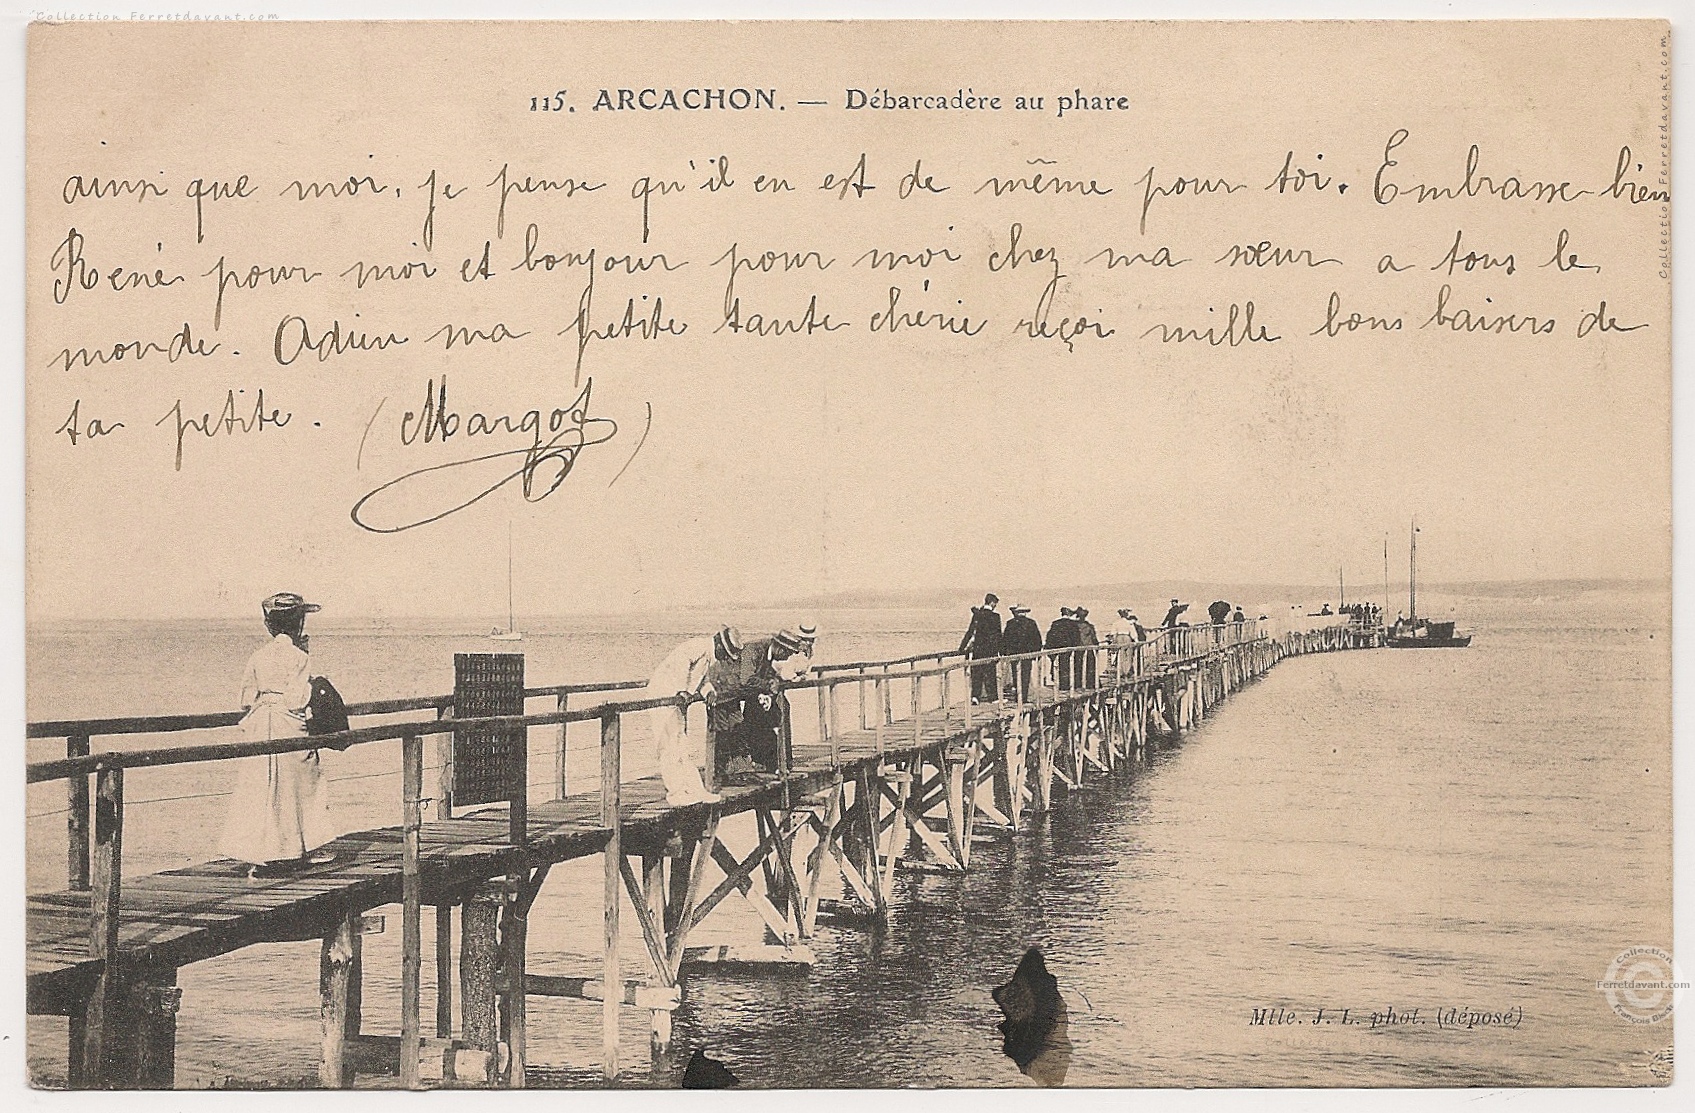 Collection Ferretdavant.com
115. ARCACHON. — Débarcadère au phare
ainsi que moi, je pense qu'il en est de même pour toi. Embrasse bien
René pour moi et bonjour pour moi chez ma sœur a tous le
monde. Adieu ma petite tante chérie reçoi mille bons baisers de
ta petite. (Margot)
Collection Ferretdavant.com
Mlle. J. L. phot. (déposé)
Collection
©
Ferretdavant.com